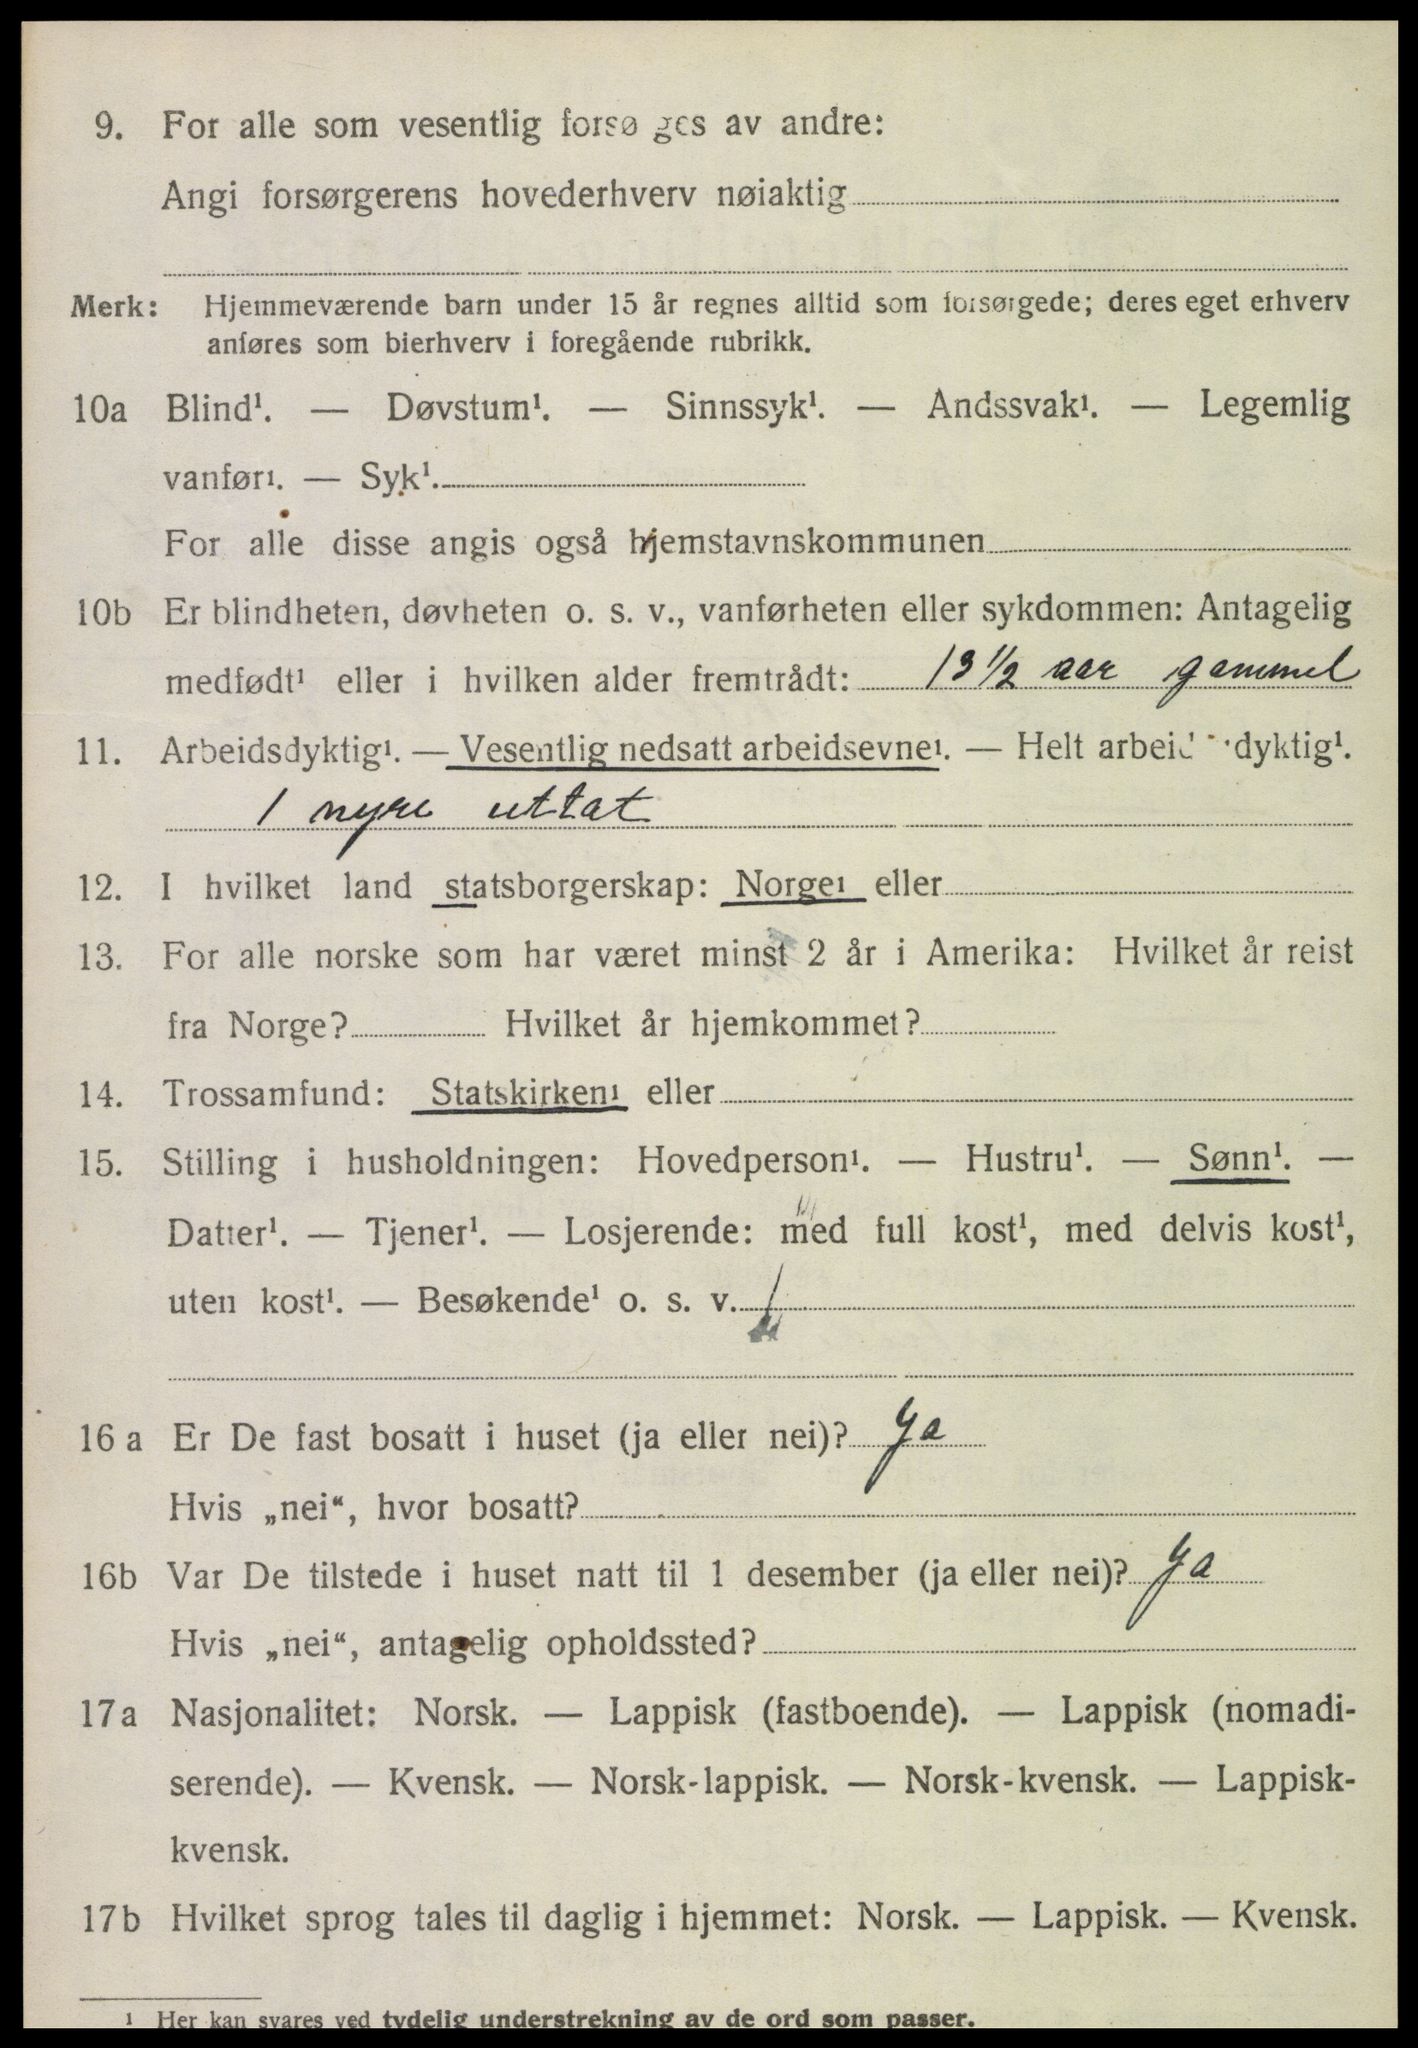 9. For alle som vesentlig forsø ges av andre:
Angi forsørgerens hovederhverv nøiaktig
Merk: Hjemmeværende barn under 15 år regnes alltid som forsørgede; deres eget erhverv
anføres som bierhverv i foregående rubrikk.
10a Blind¹. — Døvstum¹. — Sinnssyk¹. — Andssvak¹. — Legemlig
vanfør¹. — Syk¹.
For alle disse angis også hjemstavnskommunen
10b Er blindheten, døvheten o. s. v., vanførheten eller sykdommen: Antagelig
medfødt¹ eller i hvilken alder fremtrådt: 13 1/2 aar gammel
11. Arbeidsdyktig¹. — Vesentlig nedsatt arbeidsevne¹. — Helt arbeid dyktig¹.
1 nyre uttat
12. I hvilket land statsborgerskap: Norge¹ eller
13. For alle norske som har været minst 2 år i Amerika: Hvilket år reist
fra Norge? Hvilket år hjemkommet?
14. Trossamfund: Statskirken¹ eller
15. Stilling i husholdningen: Hovedperson¹. — Hustru¹. — Sønn¹. —
Datter¹. — Tjener¹. — Losjerende: med full kost¹, med delvis kost¹,
uten kost¹. — Besøkende¹ o. s. v.
16 a Er De fast bosatt i huset (ja eller nei)? Ja
Hvis „nei“, hvor bosatt?
16b Var De tilstede i huset natt til 1 desember (ja eller nei)? Ja
Hvis „nei“, antagelig opholdssted?
17a Nasjonalitet: Norsk. — Lappisk (fastboende). — Lappisk (nomadi-
serende). — Kvensk. — Norsk-lappisk. — Norsk-kvensk. — Lappisk-
kvensk.
17b Hvilket sprog tales til daglig i hjemmet: Norsk. — Lappisk. — Kvensk.
¹ Her kan svares ved tydelig understrekning av de ord som passer.